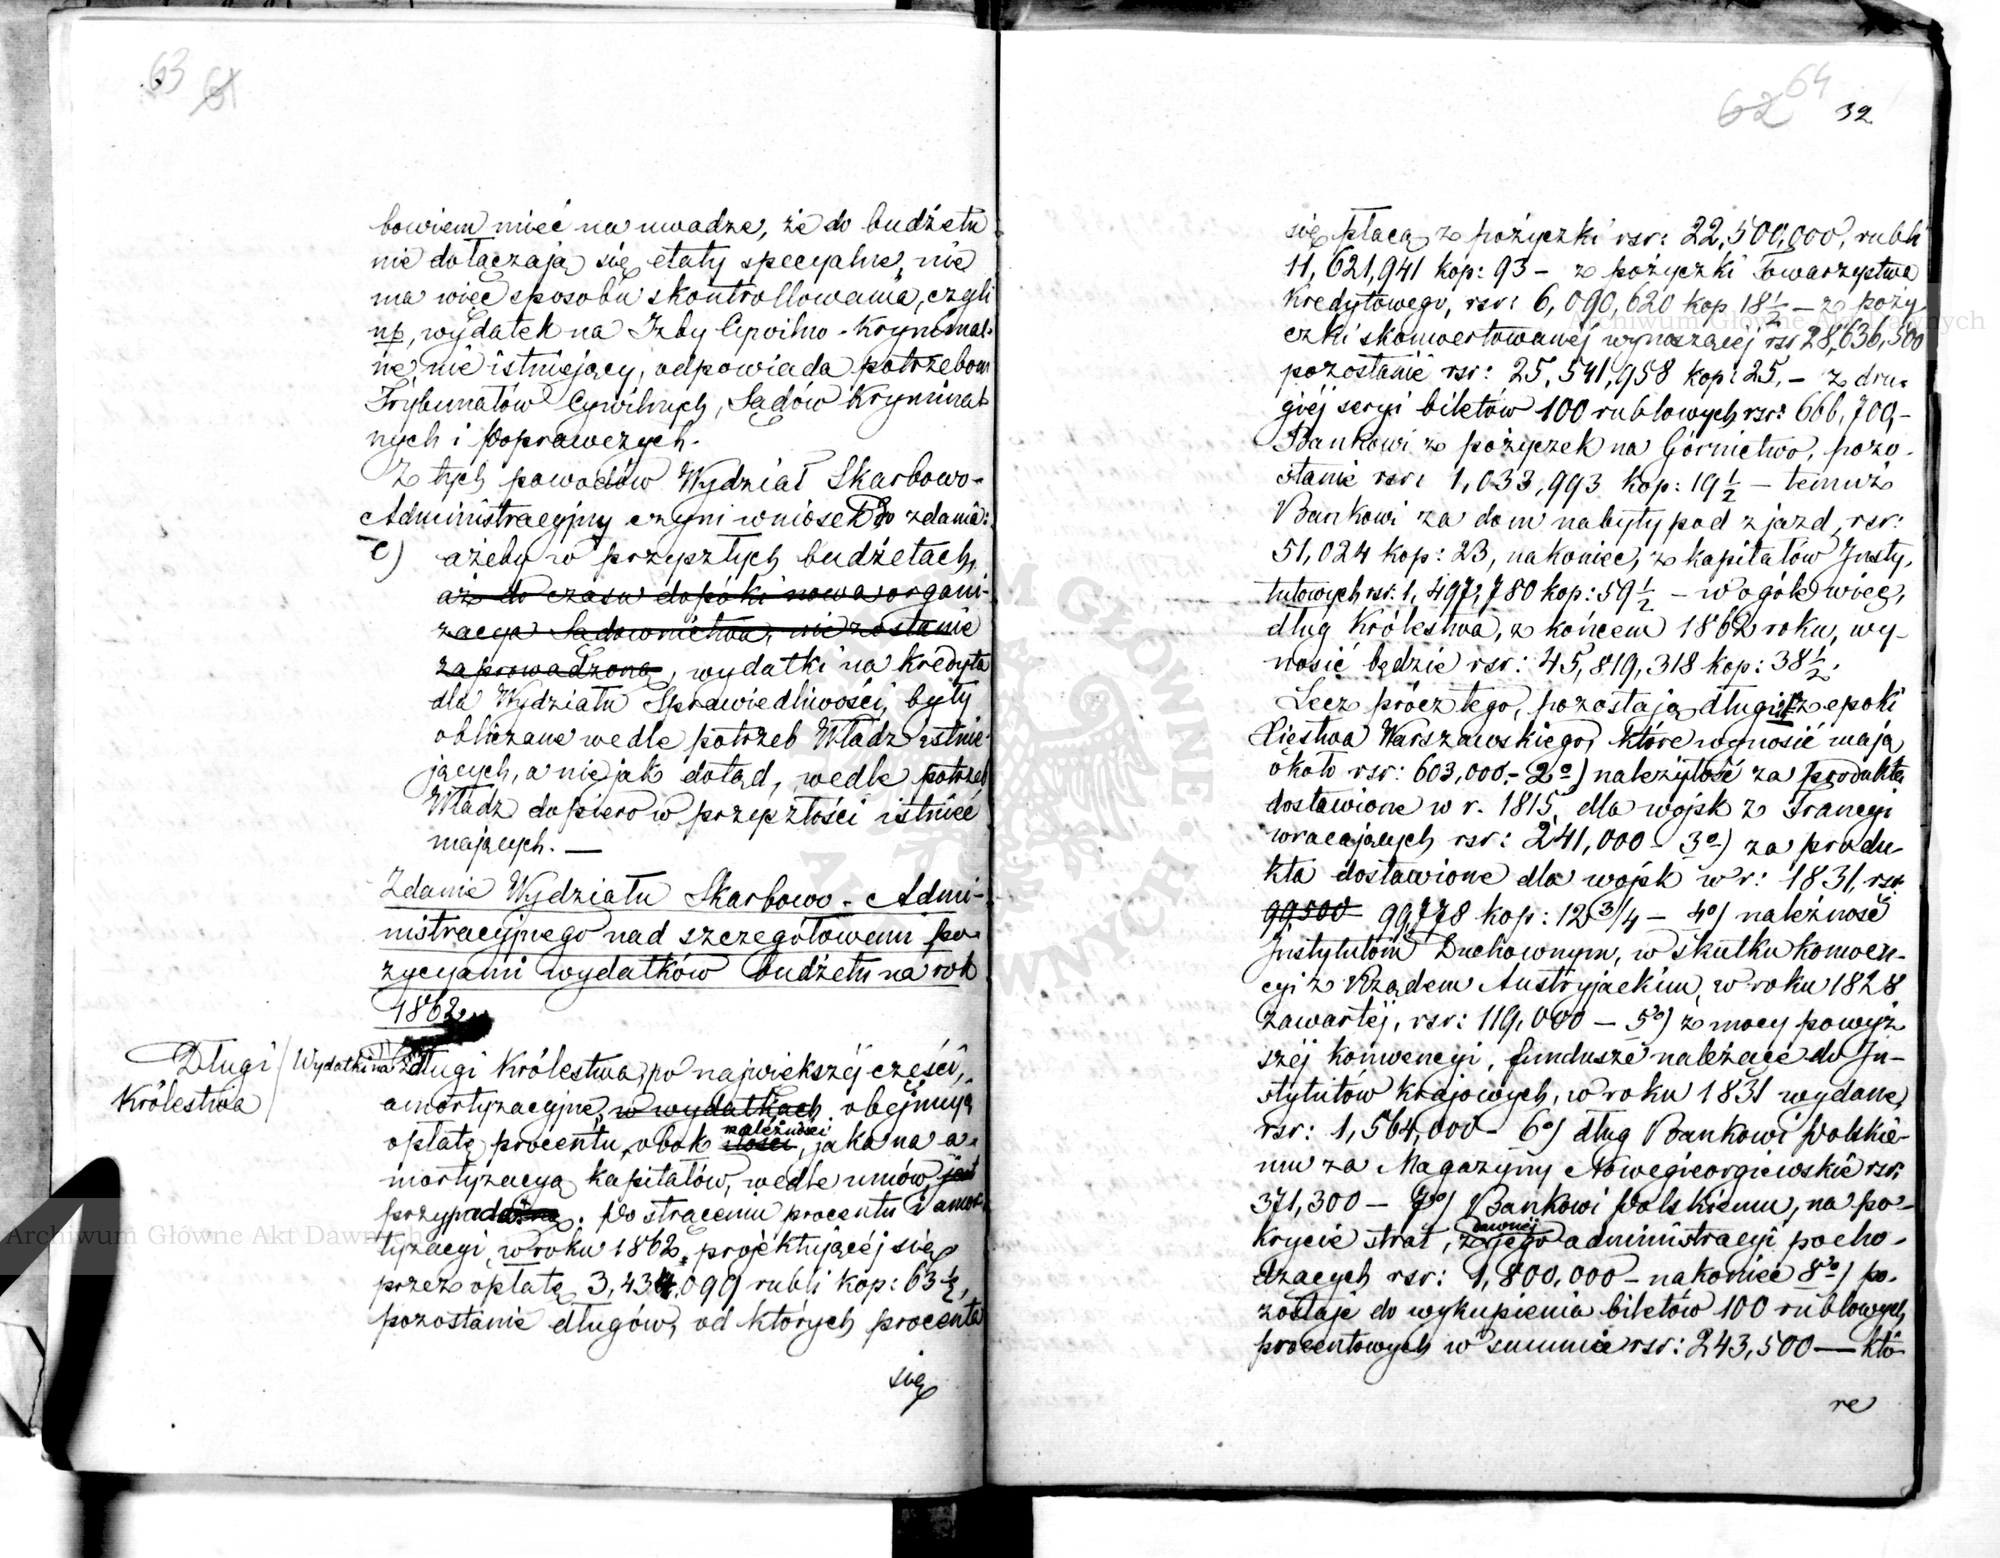 63 61
bowiem mieć na uwadze, że do budżetu
nie dołączają się etaty specyalne, nie
ma więc sposobu skontrollowania, czyli
np, wydatek na Izby Cywilno-Kryminal-
ne, nie istniejący, odpowiada potrzebom
Trybunałów Cywilnych, Sądów Kryminal-
nych i Poprawczych.
Z tych powodów Wydział Skarbowo-
Administracyjny czyni wniosek do zdania:
c) ażeby w przyszłych budżetach,
aż do czasu dopóki nowa organi-
zacya Sądownictwa, nie zostanie
zaprowadzoną, wydatki na kredyta
dla Wydziału Sprawiedliwości, były
obliczane wedle potrzeb Władz istnie-
jących, a nie jak dotąd, wedle potrzeb
Władz dopiero w przyszłości istnieć
mających. —
Zdanie Wydziału Skarbowo-Admi-
nistracyjnego nad szczegółowemi po-
zycyami wydatków budżetu na rok
1862.
Długi
Królestwa
Wydatki na Długi Królestwa, po największéj części,
amortyzacyjne, w wydatkach obejmują
opłatę procentu, obok należności ilości, jaka na a-
mortyzacyą kapitałów, wedle umów, jest
przypada. Po strąceniu procentu i amor-
tyzacyi, w roku 1862, projektującéj się
przez opłatę 3,434,099 rubli kop: 63½,
pozostanie długów, od których procenta
się
62 64 32
się płacą z pożyczki rsr: 22,500,000, rubli
11,621,941 kop: 93 – z pożyczki Towarzystwa
Kredytowego, rsr: 6,090,620 kop 18½ – z poży
czki skonwertowanéj wynoszącéj rsr 28,636,500
pozostanie rsr: 25,541,958 kop: 25, – z dru-
giéj seryi biletów 100 rublowych rsr: 666,700, –
Bankowi z pożyczek na Górnictwo, pozo-
stanie rsr: 1,033,993 kop: 19½ – temuż
Bankowi za dom nabyty pod zjazd, rsr:
51,024 kop: 23, nakoniec, z kapitałów Insty-
tutowych, rsr: 1,497,780 kop: 59½ – w ogóle więc,
dług Królestwa, z końcem 1862 roku, wy-
nosić będzie rsr: 45,819,318 kop: 38½.
Lecz prócz tego, pozostają długi: z epoki
Xięstwa Warszawskiego, które wynosić mają
około rsr: 603,000, – 2º) należytość za produkta
dostawione w r. 1815, dla wojsk z Francyi
wracających rsr: 241,000 – 3º) za produ-
kta dostawione dla wojsk w r: 1831, rsr
99,500 99,778 kop: 12¾ – 4º) należność
Instytutom Duchownym, w skutku konwen-
cyi z Rządem Austryjackim, w roku 1828
zawartéj, rsr: 119,000 – 5º) z mocy powyż
széj konwencyi, fundusze należące do In-
stytutów krajowych, w roku 1831 wydane,
rsr: 1,564,000 – 6º) dług Bankowi Polskie-
mu za Magazyny Nowogieorgiewskie rsr:
371,300 – 7º) Bankowi Polskiemu, na po-
krycie strat, z jego dawnéj administracyi pocho-
dzących rsr: 1,800,000 – nakoniec 8º) po-
zostaje do wykupienia biletów 100 rublowych
procentowych w summie rsr: 243,500 — któ-
re
Archiwum Główne Akt Dawnych
Archiwum Główne Akt Dawnych